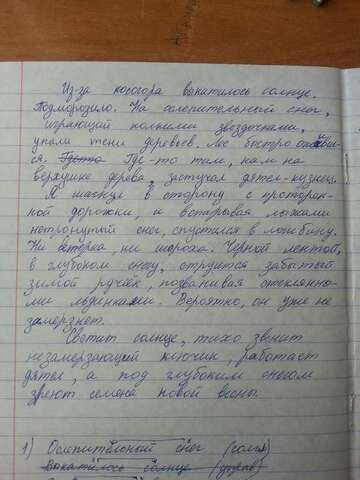 Из-за косогора выкатилось солнце.
Подморозило. На ослепительный снег,
играющий полними звездочками,
упали тени деревьев. Лес быстро оживил-
ся. Где-то там, на
верхушке дерева, застучал дятел-кузнец.
Я шагнул в сторону с проторен-
ной дорожки, и вспарывая лыжами
нетронутый снег, спустился в ложбину.
Ни ветерка, ни шороха. Черной лентой,
в глубоком снегу, струится забытый
зимой ручеёк, позванивая стеклянны-
ми льдинками. Вероятно, он уже не
замерзнет.
Светит солнце, тихо звенит
незамерзающий ключик, работает
дятел, а под глубоким снегом
зреют семена новой весны.
1) Ослепительный снег (согл)
Выкатилось солнце (управ)